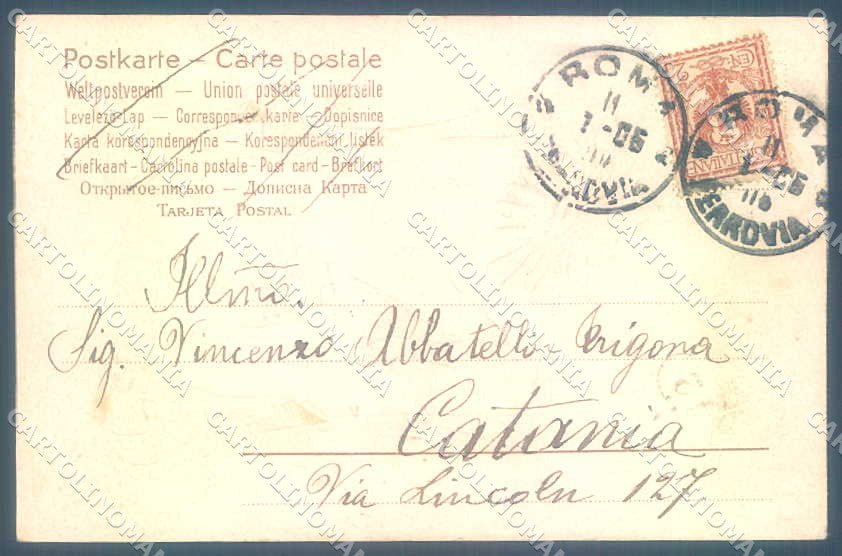 Postkarte – Carte postale
Weltpostverein – Union postale universelle
Levelező-Lap – Correspondenzkarte – Dopisnice
Karta korespondencyjna – Korespondenční lístek
Briefkaart – Cartolina postale – Post card – Brefkort
Открытое письмо – Дописна Карта
TARJETA POSTAL
ROMA
11
1-05
FERROVIA
ROMA
11
1-05
FERROVIA
Illmi.
Sig. Vincenzo Abbatelli Trigona
Catania
Via Lincoln 127
CARTOLINOMANIA